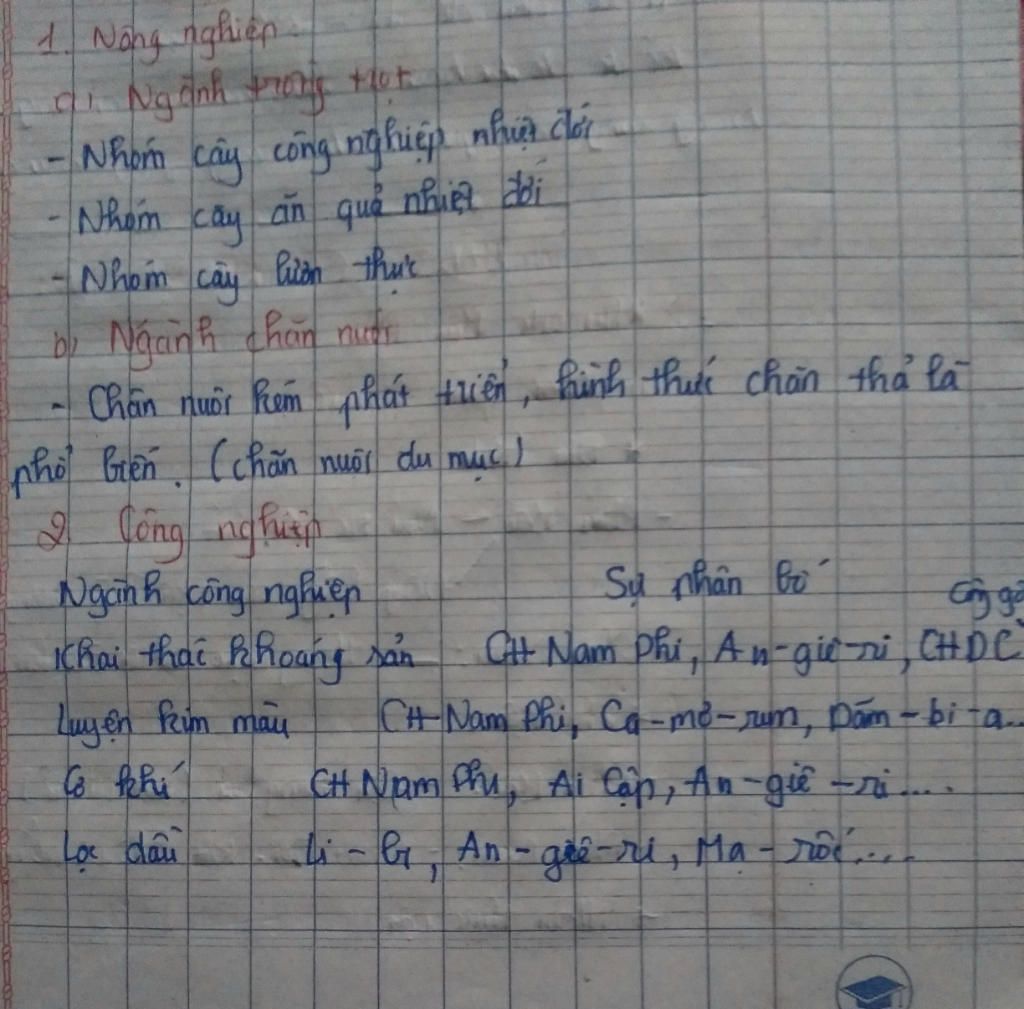 1. Nông nghiệp
a) Ngành trồng trọt
- Nhóm cây công nghiệp nhiệt đới
- Nhóm cây ăn quả nhiệt đới
- Nhóm cây lươn thực
b) Ngành chăn nuôi
- Chăn nuôi kém phát triển, hình thức chăn thả là
phổ biến. (chăn nuôi du mục)
2 Công nghiệp
Ngành công nghiệp Sự phân bố
Khai thác khoáng sản CH Nam Phi, An-giê-ri, CHDC Công gô
Luyện kim màu CH Nam Phi, Ca-mờ-rum, Dăm-bi-a...
Cơ khí CH Nam Phi, Ai Cập, An-giê-ri....
Lọc dầu Li-bi, An-giê-ri, Ma-rốc....